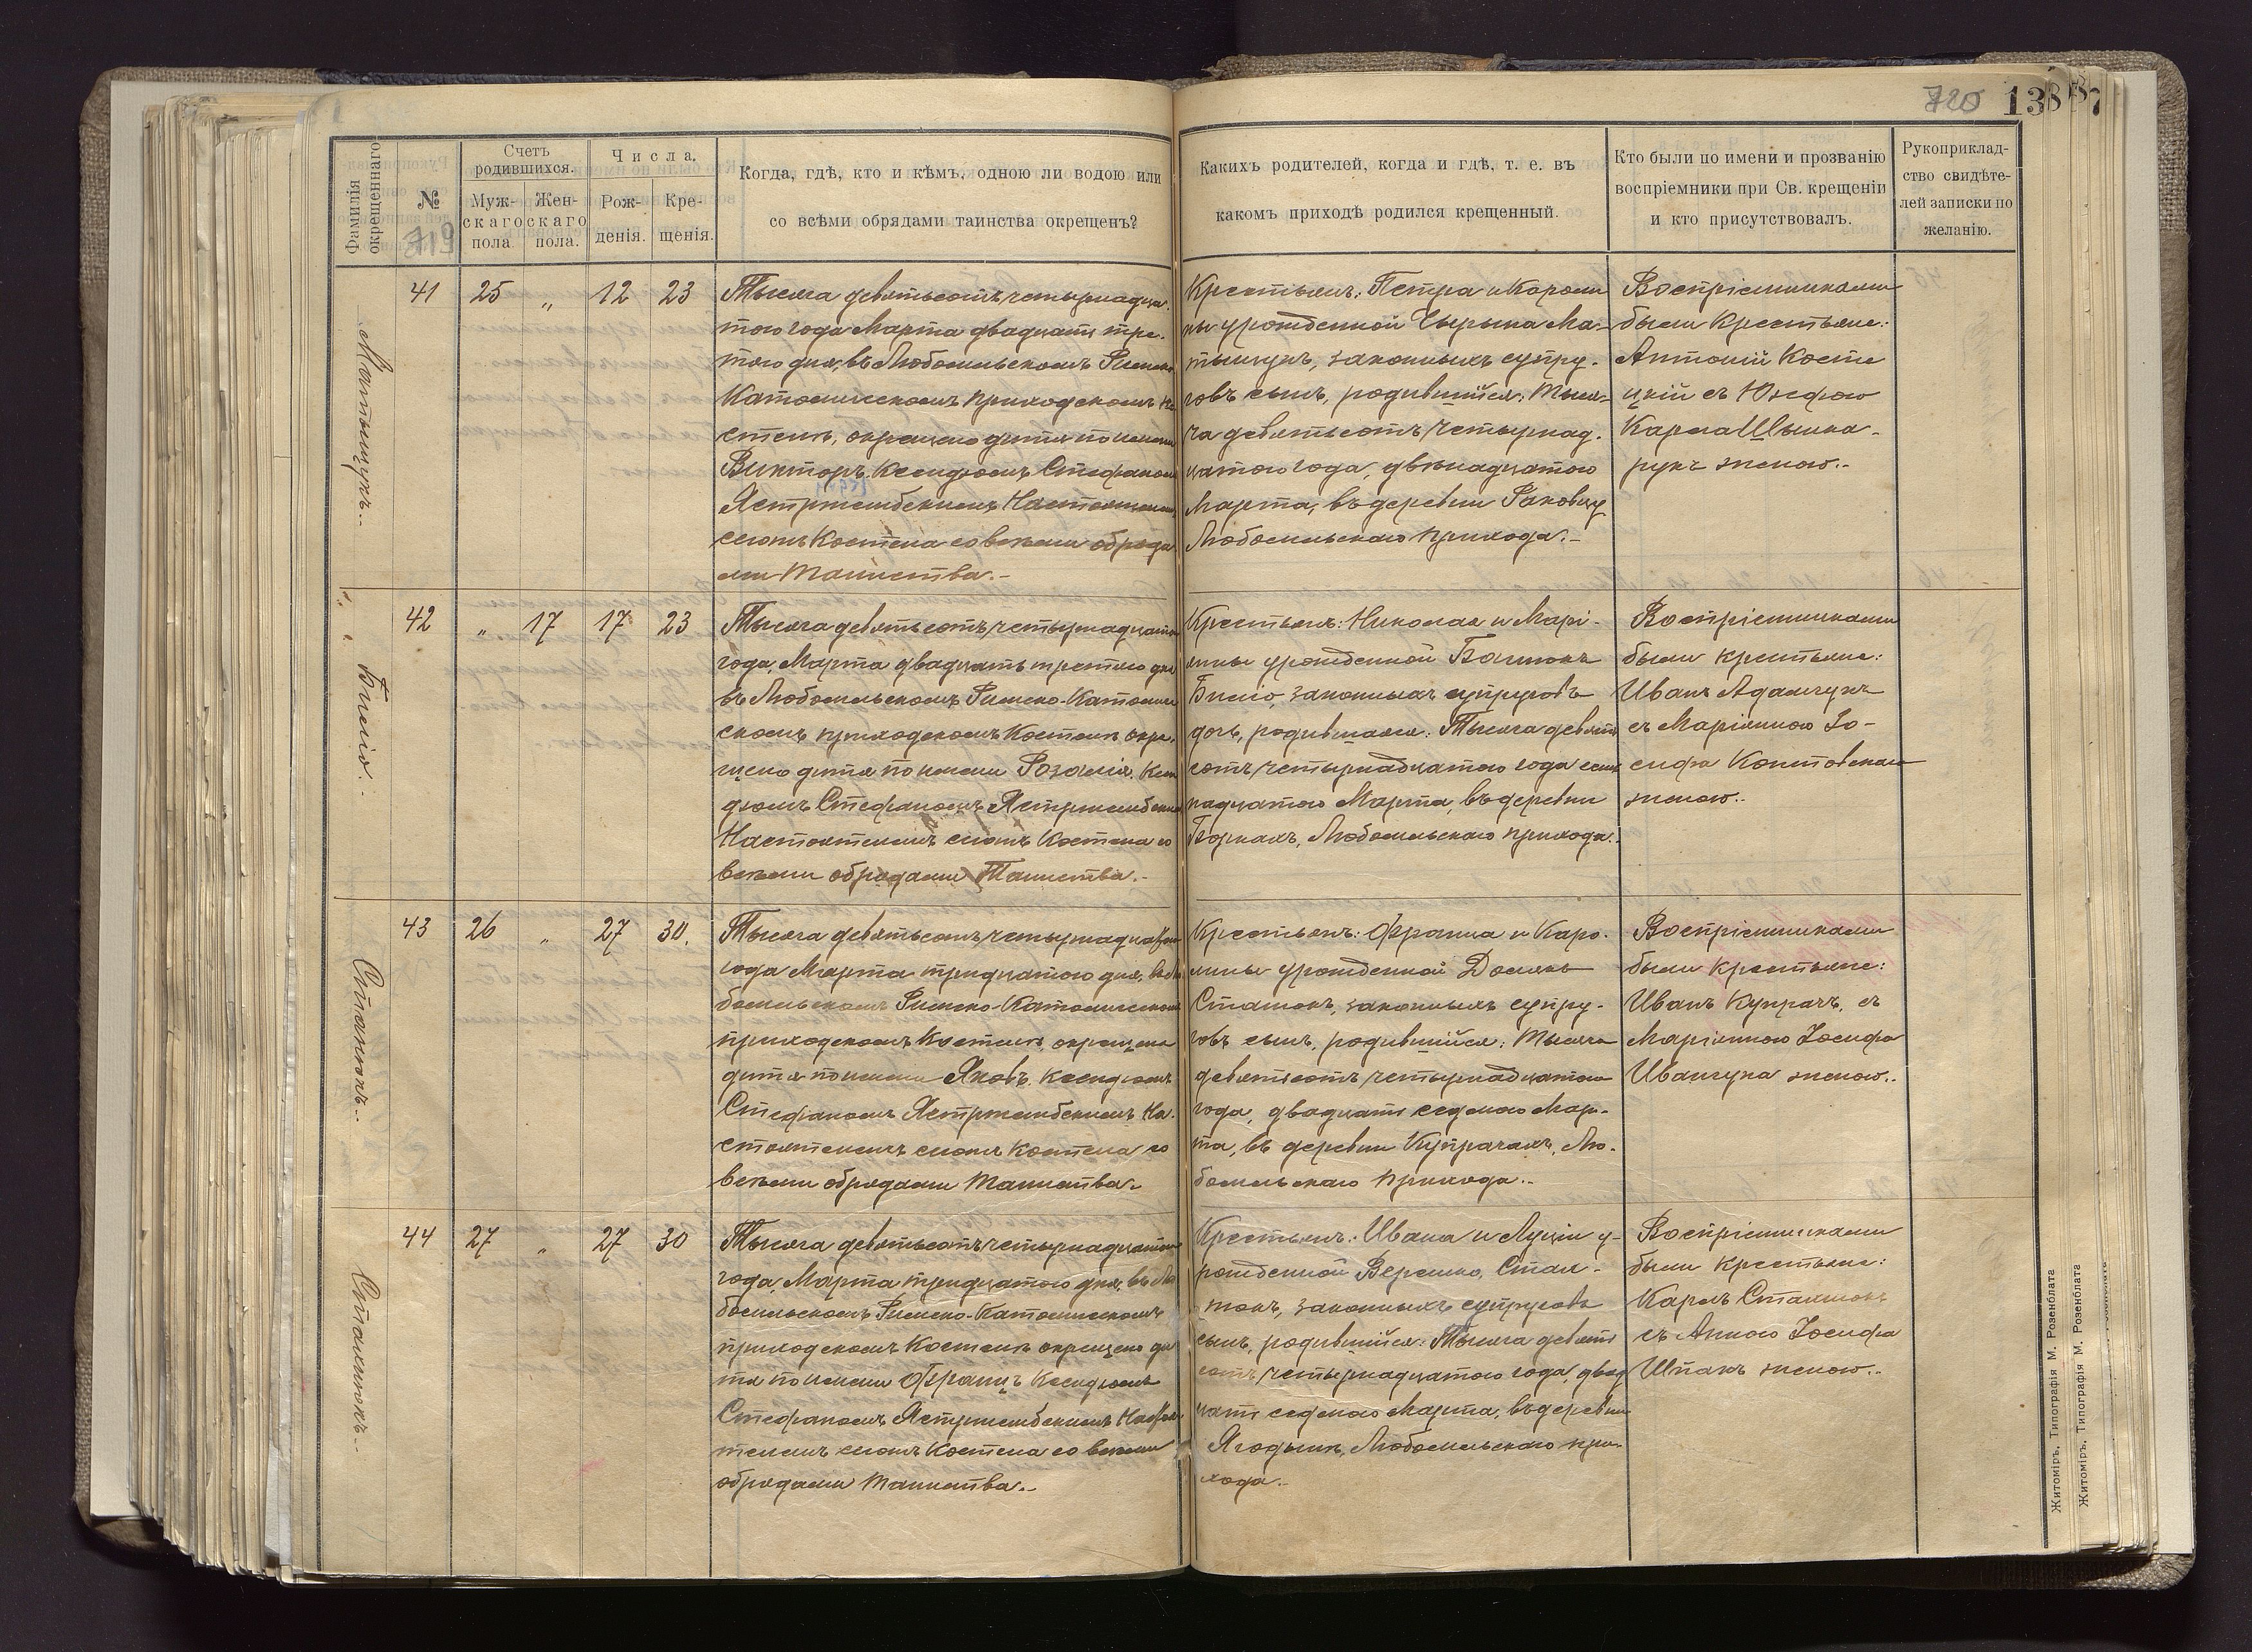 720 138
719
Фамилія окрещеннаго
№
Счетъ родившихся.
Мужскаго пола.
Женскаго пола.
Числа.
Рожденія.
Крещенія.
Когда, гдѣ, кто и кѣмъ, одною ли водою или
со всѣми обрядами таинства окрещенъ?
Какихъ родителей, когда и гдѣ, т. е. въ
какомъ приходѣ родился крещенный.
Кто были по имени и прозванію
воспріемники при Св. крещеніи
и кто присутствовалъ.
Рукоприклад-
ство свидѣте-
лей записки по
желанію.
Матыщукъ..
41 25 „ 12 23
Тысяча девятьсотъ четырнадца-
того года Марта двадцать тре-
того дня, въ Любомльскомъ Римско
Католическомъ приходскомъ Ко
стелѣ, окрещено дитя по имени
Викторъ Ксендзомъ Стефаномъ
Ястржембскимъ Настоятелемъ
сегожъ Костела со всѣми обряда
ми Таинства.-
Крестьянъ: Петра и Кароли
ны урожденной Чырыка Ма-
тыщукъ, законныхъ супру-
говъ сынъ, родившійся: Тыся-
ча девятьсотъ четырнад-
цатого года, двѣнадцатого
Марта, въ деревни Раковцу
Любомльскаго прихода.-
Воспріемниками
были Крестьяне:
Антоній Косте
цкій съ Юзефою
Карла Шынка-
рукъ женою..
Билію.
42 „ 17 17 23
Тысяча девятьсотъ четырнадцатого
года, Марта двадцать третого дня
въ Любомльскомъ Римско-Католиче
скомъ приходскомъ Костелѣ окре-
щено дитя по имени Розалія, Ксен
дзомъ Стефаномъ Ястржембскимъ
Настоятелемъ сегожъ Костела со
всѣми обрядами Таинства.-
Крестьянъ: Николая и Марі-
янны урожденной
законныхъ супруговъ
дочь, родившаяся: Тысяча девять
сотъ четырнадцатого года сем
надцатого Марта, въ деревни
Боркахъ, Любомльскаго прихода.
Воспріемниками
были крестьяне:
Иванъ Адамчукъ
съ Маріянною Іо-
сифа
женою..
Сташокъ..
43 26 „ 27 30.
Тысяча девятьсотъ четырнадцатого
года Марта тридцатого дня, въ Лю
бомльскомъ Римско-Католическомъ
приходскомъ Костелѣ, окрещено
дитя по имени Яковъ Ксендзомъ
Стефаномъ Ястржембскимъ На-
стоятелемъ сегожъ Костела со
всѣми обрядами Таинства.-
Крестьянъ: Франца и Каро-
лины урожденной
законныхъ супру-
говъ сынъ, родившійся: Тысяча
девятьсотъ четырнадцатого
года, двадцать седмого Мар-
та, въ деревни Купрачахъ, Лю-
бомльскаго прихода..
Воспріемниками
были крестьяне:
Иванъ Купрачъ, съ
Маріянною Іосифа
Иванчука женою..
44 27 „ 27 30
Тысяча девятьсотъ четырнадцатого
года, Марта тридцатого дня, въ Лю
бомльскомъ Римско-Католическомъ
приходскомъ Костелѣ окрещено ди
тя по имени Францъ Ксендзомъ
Стефаномъ Ястржембскимъ Настоя
телемъ сегожъ Костела со всѣми
обрядами Таинства..
Крестьянъ: Ивана и Луціи у-
рожденной
законныхъ супруговъ
сынъ, родившійся: Тысяча девять
сотъ четырнадцатого года, двад
цать седмого Марта, въ деревни
Ягодынѣ, Любомльскаго при-
хода.-
Воспріемниками
были крестьяне:
Карлъ
съ Анною Іосифа
Шпакъ женою..
Житоміръ, Типографія М. Розенблата
Житоміръ, Типографія М. Розенблата